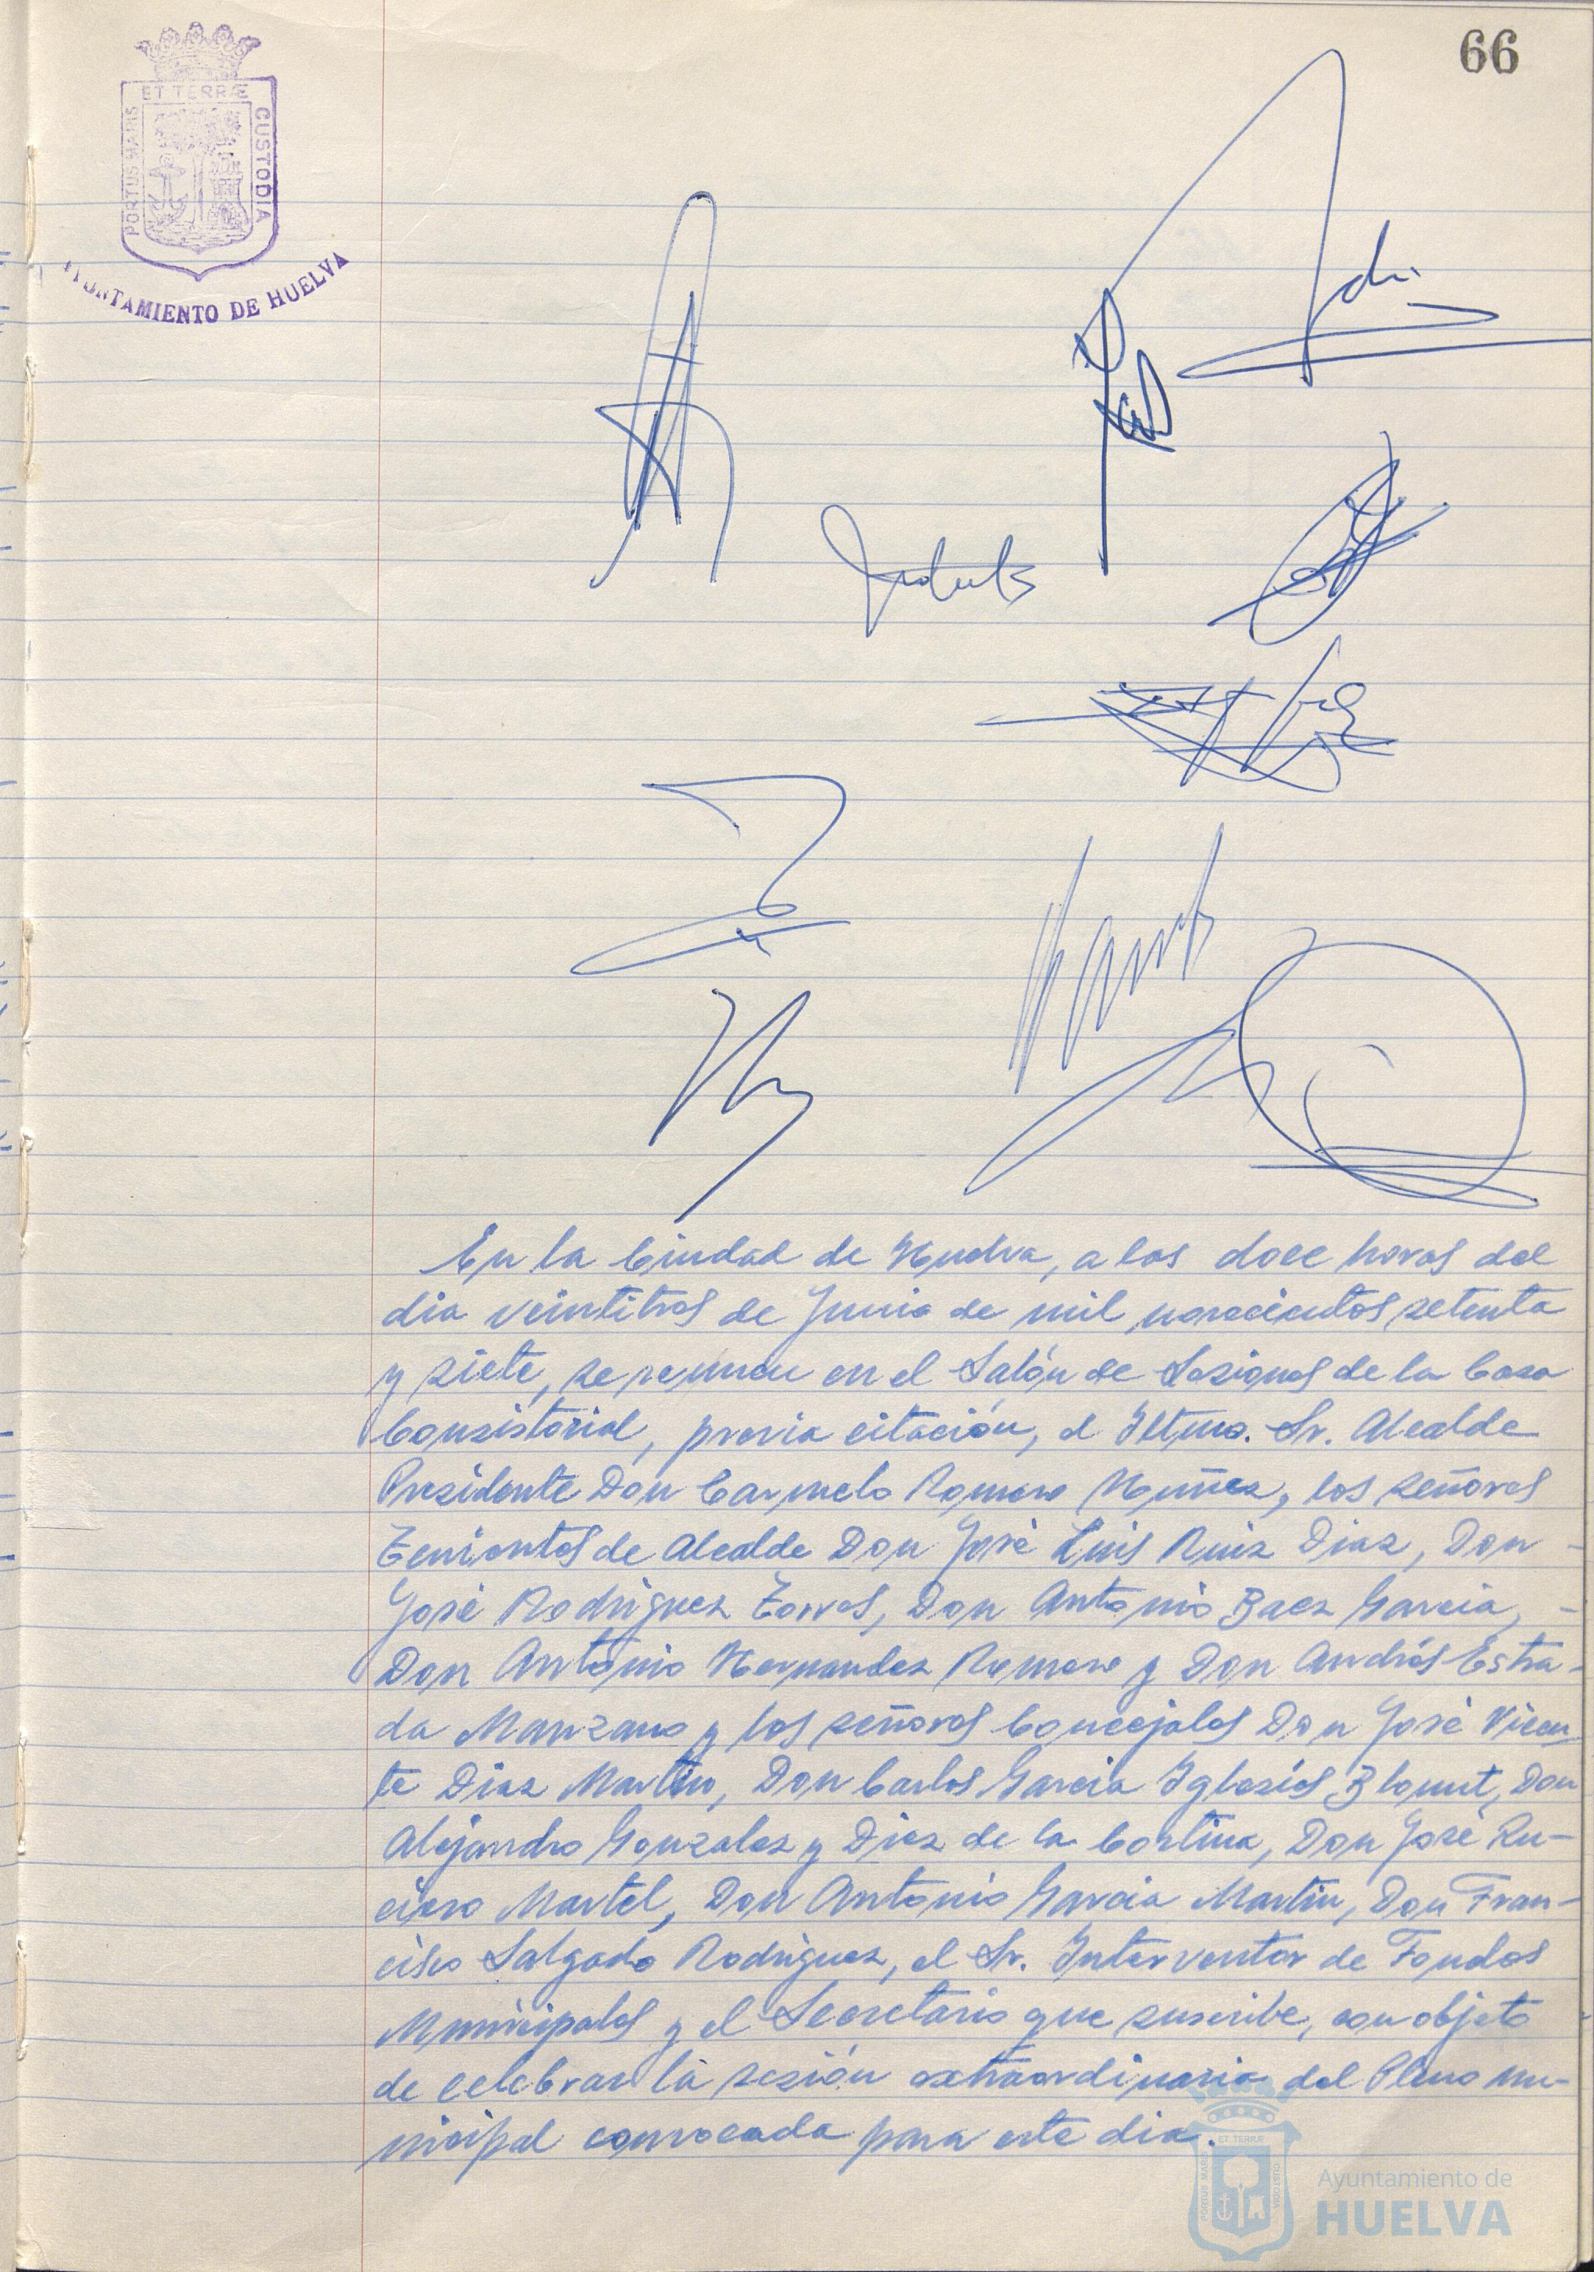 66
ET TERRÆ
PORTUS MARIS
CUSTODIA
AYUNTAMIENTO DE HUELVA
En la Ciudad de Huelva, a las doce horas del
dia veintitres de Junio de mil novecientos setenta
y siete, se reunen en el Salón de Sesiones de la Casa
Consistorial, previa citación, el Iltmo. Sr. Alcalde
Presidente Don Carmelo Romero Nuñez, los señores
Tenientes de Alcalde Don José Luis Ruiz Diaz, Don -
José Rodriguez Torres, Don Antonio Baez Garcia, -
Don Antonio Hernandez Romero y Don Andrés Estra-
da Manzano y los señores Concejales Don José Vicen-
te Diaz Martin, Don Carlos Garcia Iglesias Blount, Don
Alejandro Gonzalez y Diez de la Cortina, Don José Ru-
ciero Martel, Don Antonio Garcia Martin, Don Fran-
cisco Salgado Rodriguez, el Sr. Interventor de Fondos
Municipales y el Secretario que suscribe, con objeto
de celebrar la sesión extraordinaria del Pleno mu-
nicipal convocada para este dia.
ET TERRÆ
PORTUS MARIS
CUSTODIA
Ayuntamiento de
HUELVA